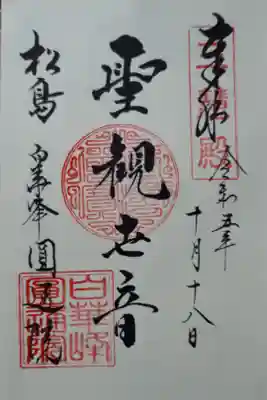 奉拝
令和五年
十月十八日
聖観世音
松島 白華峰 圓通院
白華峰
圓通院